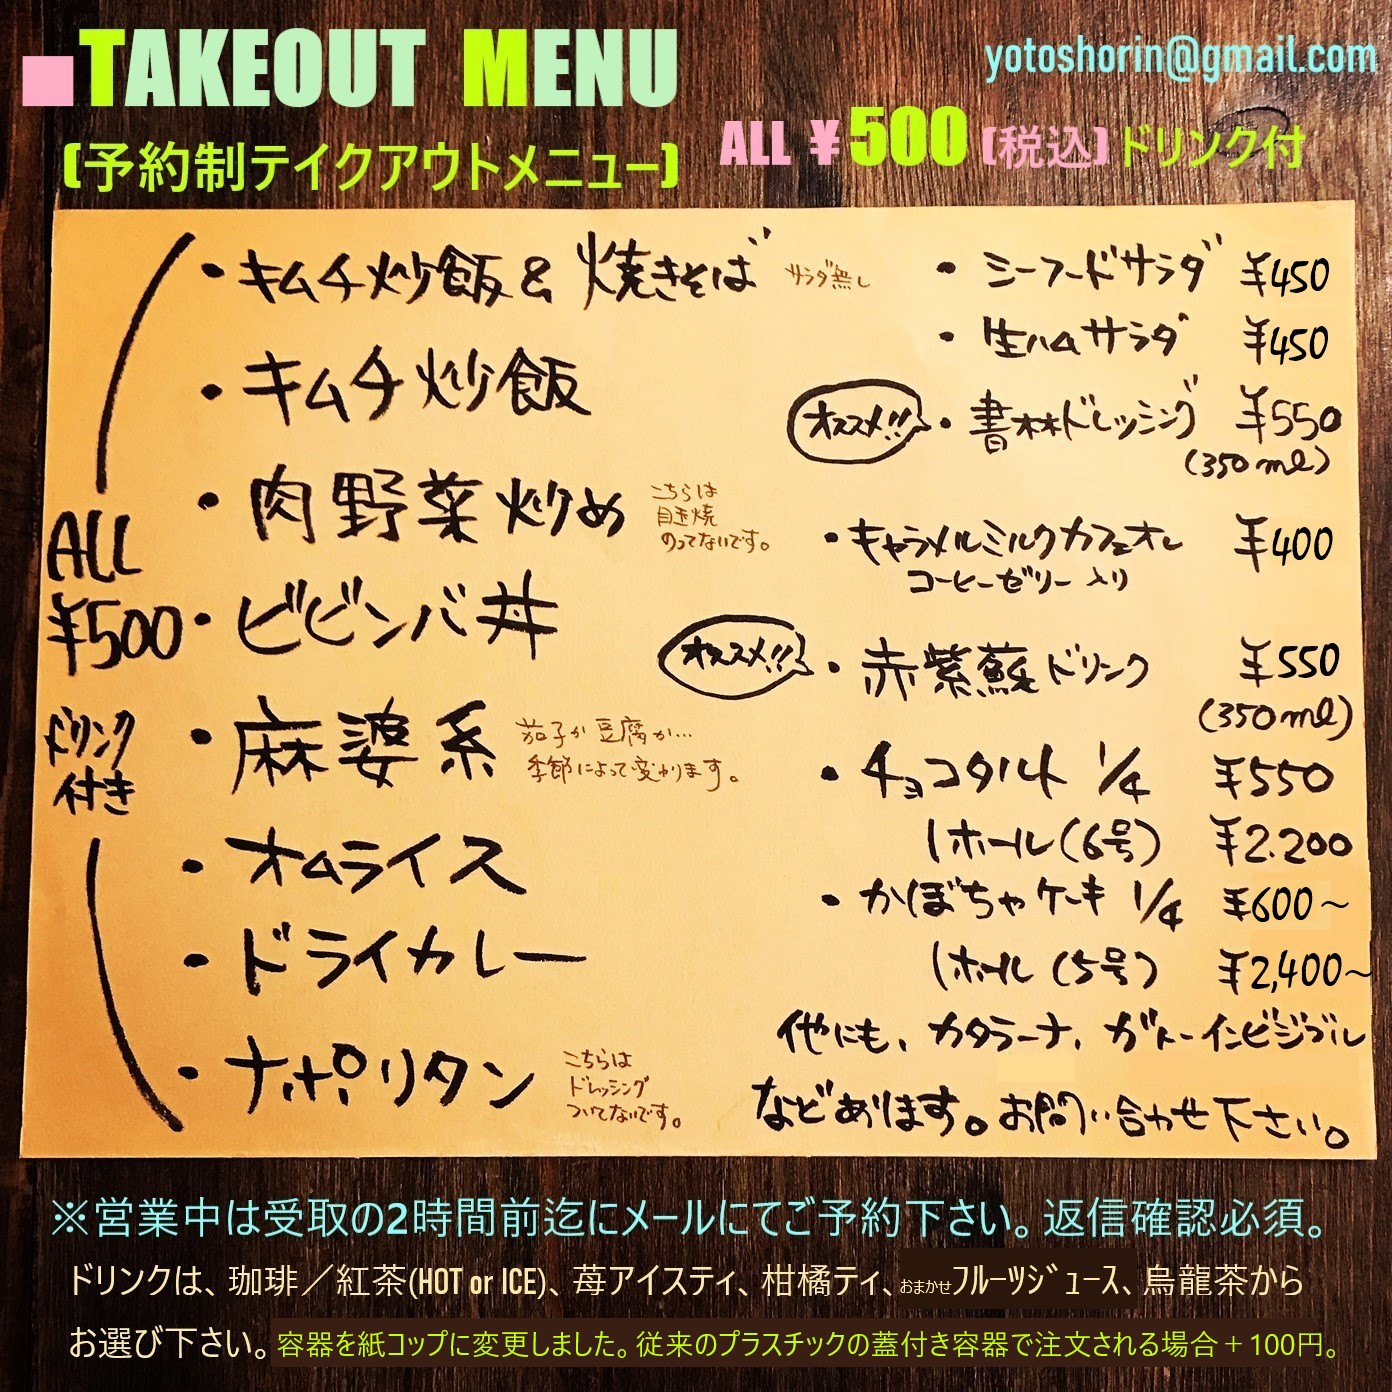 ■TAKEOUT MENU
(予約制テイクアウトメニュー)
yotoshorin@gmail.com
ALL ¥500(税込)ドリンク付
ALL
¥500
ドリンク
付き
・キムチ炒飯&焼きそば サラダ無し
・キムチ炒飯
・肉野菜炒め こちらは
目玉焼
のってないです。
・ビビンバ丼
・麻婆系 茄子か豆腐か…
季節によって変わります。
・オムライス
・ドライカレー
・ナポリタン こちらは
ドレッシング
ついてないです。
・シーフードサラダ ¥450
・生ハムサラダ ¥450
オススメ!! ・書林ドレッシング ¥550
(350ml)
・キャラメルミルクカフェオレ ¥400
コーヒーゼリー入り
オススメ!! ・赤紫蘇ドリンク ¥550
(350ml)
・チョコタルト 1/4 ¥550
1ホール(6号) ¥2.200
・かぼちゃケーキ 1/4 ¥600~
1ホール(5号) ¥2,400~
他にも、カタラーナ、ガトーインビジブル
などあります。お問い合わせ下さい。
※営業中は受取の2時間前迄にメールにてご予約下さい。返信確認必須。
ドリンクは、珈琲/紅茶(HOT or ICE)、苺アイスティ、柑橘ティ、おまかせフルーツジュース、烏龍茶から
お選び下さい。容器を紙コップに変更しました。従来のプラスチックの蓋付き容器で注文される場合+100円。